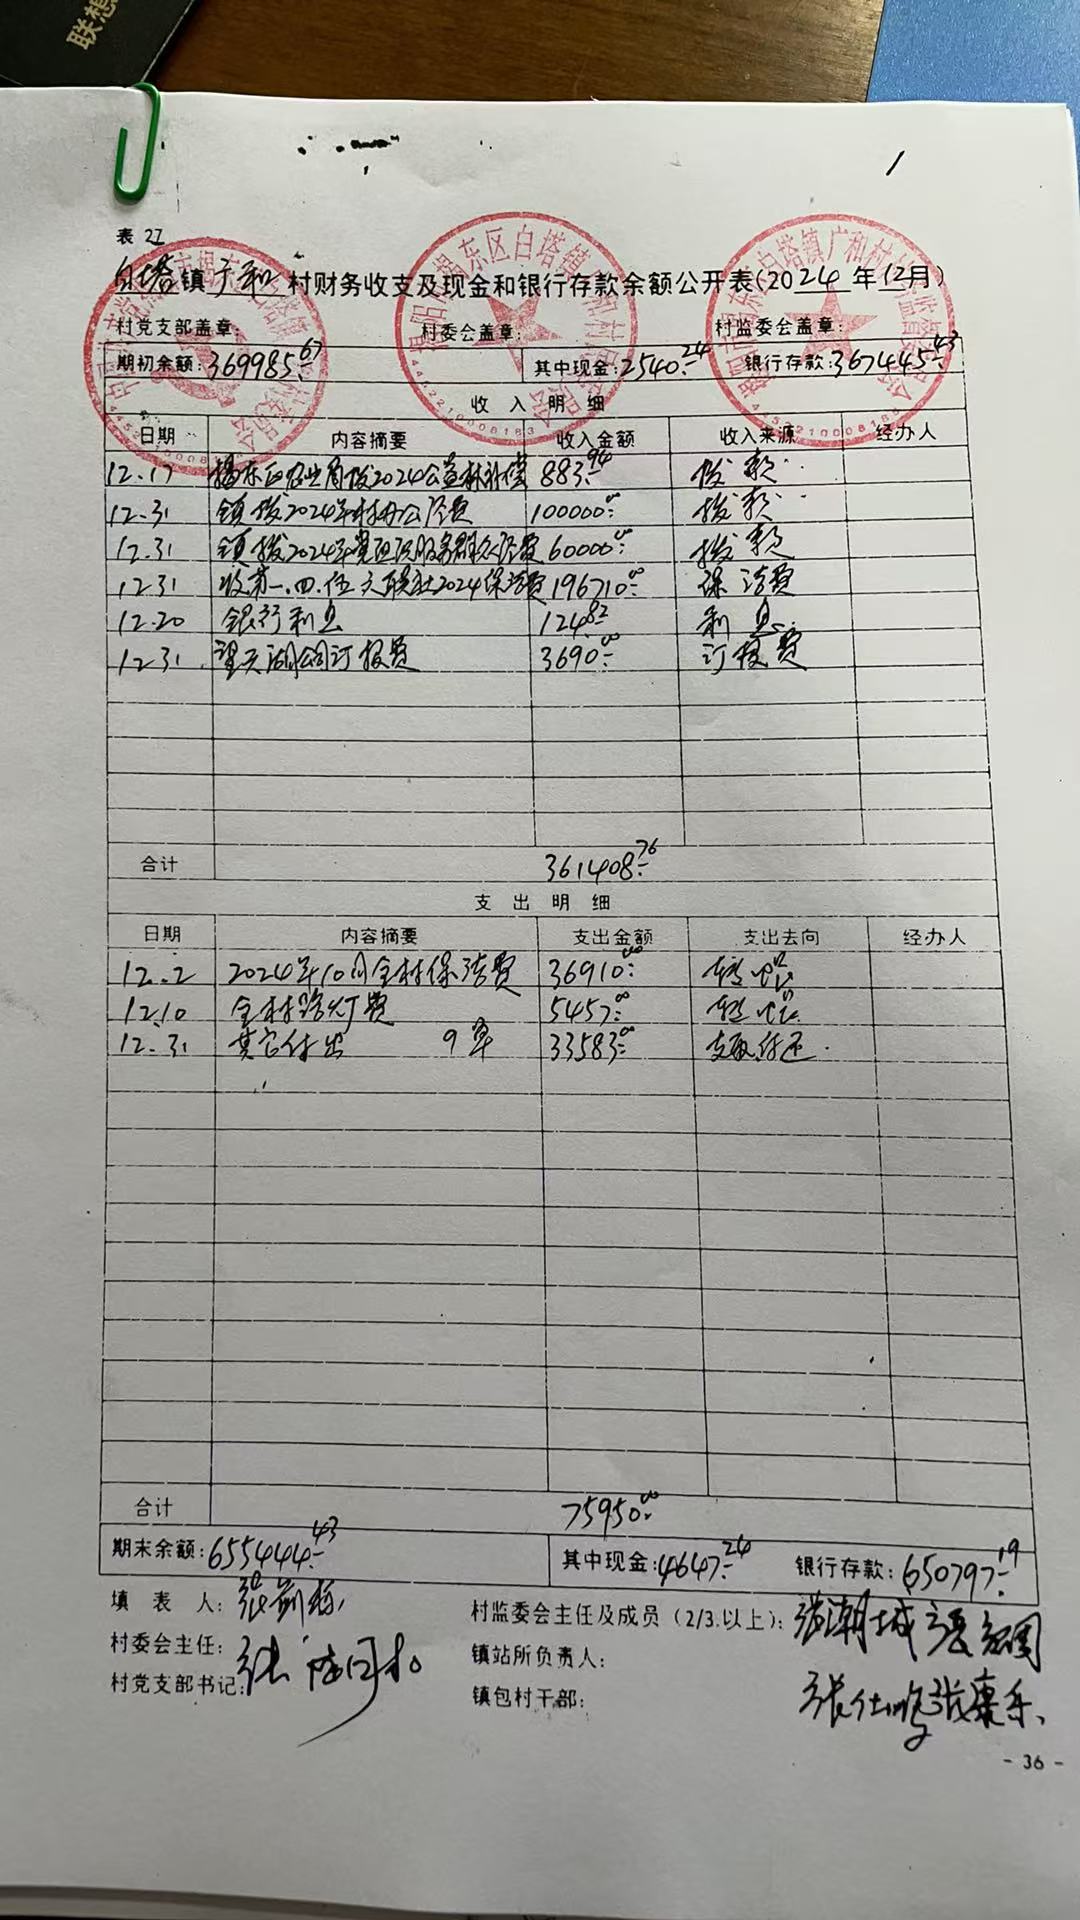 联想
1
表 27
白塔镇广和村财务收支及现金和银行存款余额公开表(2024年12月)
村党支部盖章: 村委会盖章: 村监委会盖章:
期初余额:369985.67 其中现金:2540.24 银行存款:367445.43
收 入 明 细
日期 内容摘要 收入金额 收入来源 经办人
12.17 揭东区农业局拨2024公益林补偿 883.94 拨款
12.31 镇拨2024年村办公经费 100000.00 拨款
12.31 镇拨2024年党组织服务群众经费 60000.00 拨款
12.31 收第一.四.伍.六联社2024保洁费 196710.00 保洁费
12.20 银行利息 124.82 利息
12.31 望天湖公司订报费 3690.00 订报费
合计 361408.76
支 出 明 细
日期 内容摘要 支出金额 支出去向 经办人
12.2 2024年10月全村保洁费 36910.00 转账
12.10 全村路灯费 5457.00 转账
12.31 其它付出 9单 33583.00 支取付还
合计 75950.00
期末余额:655444.43 其中现金:4647.24 银行存款:650797.19
填 表 人:
村委会主任:
村党支部书记:
村监委会主任及成员(2/3.以上): 张潮城
镇站所负责人:
镇包村干部:
张仕鹏 张康乐
- 36 -